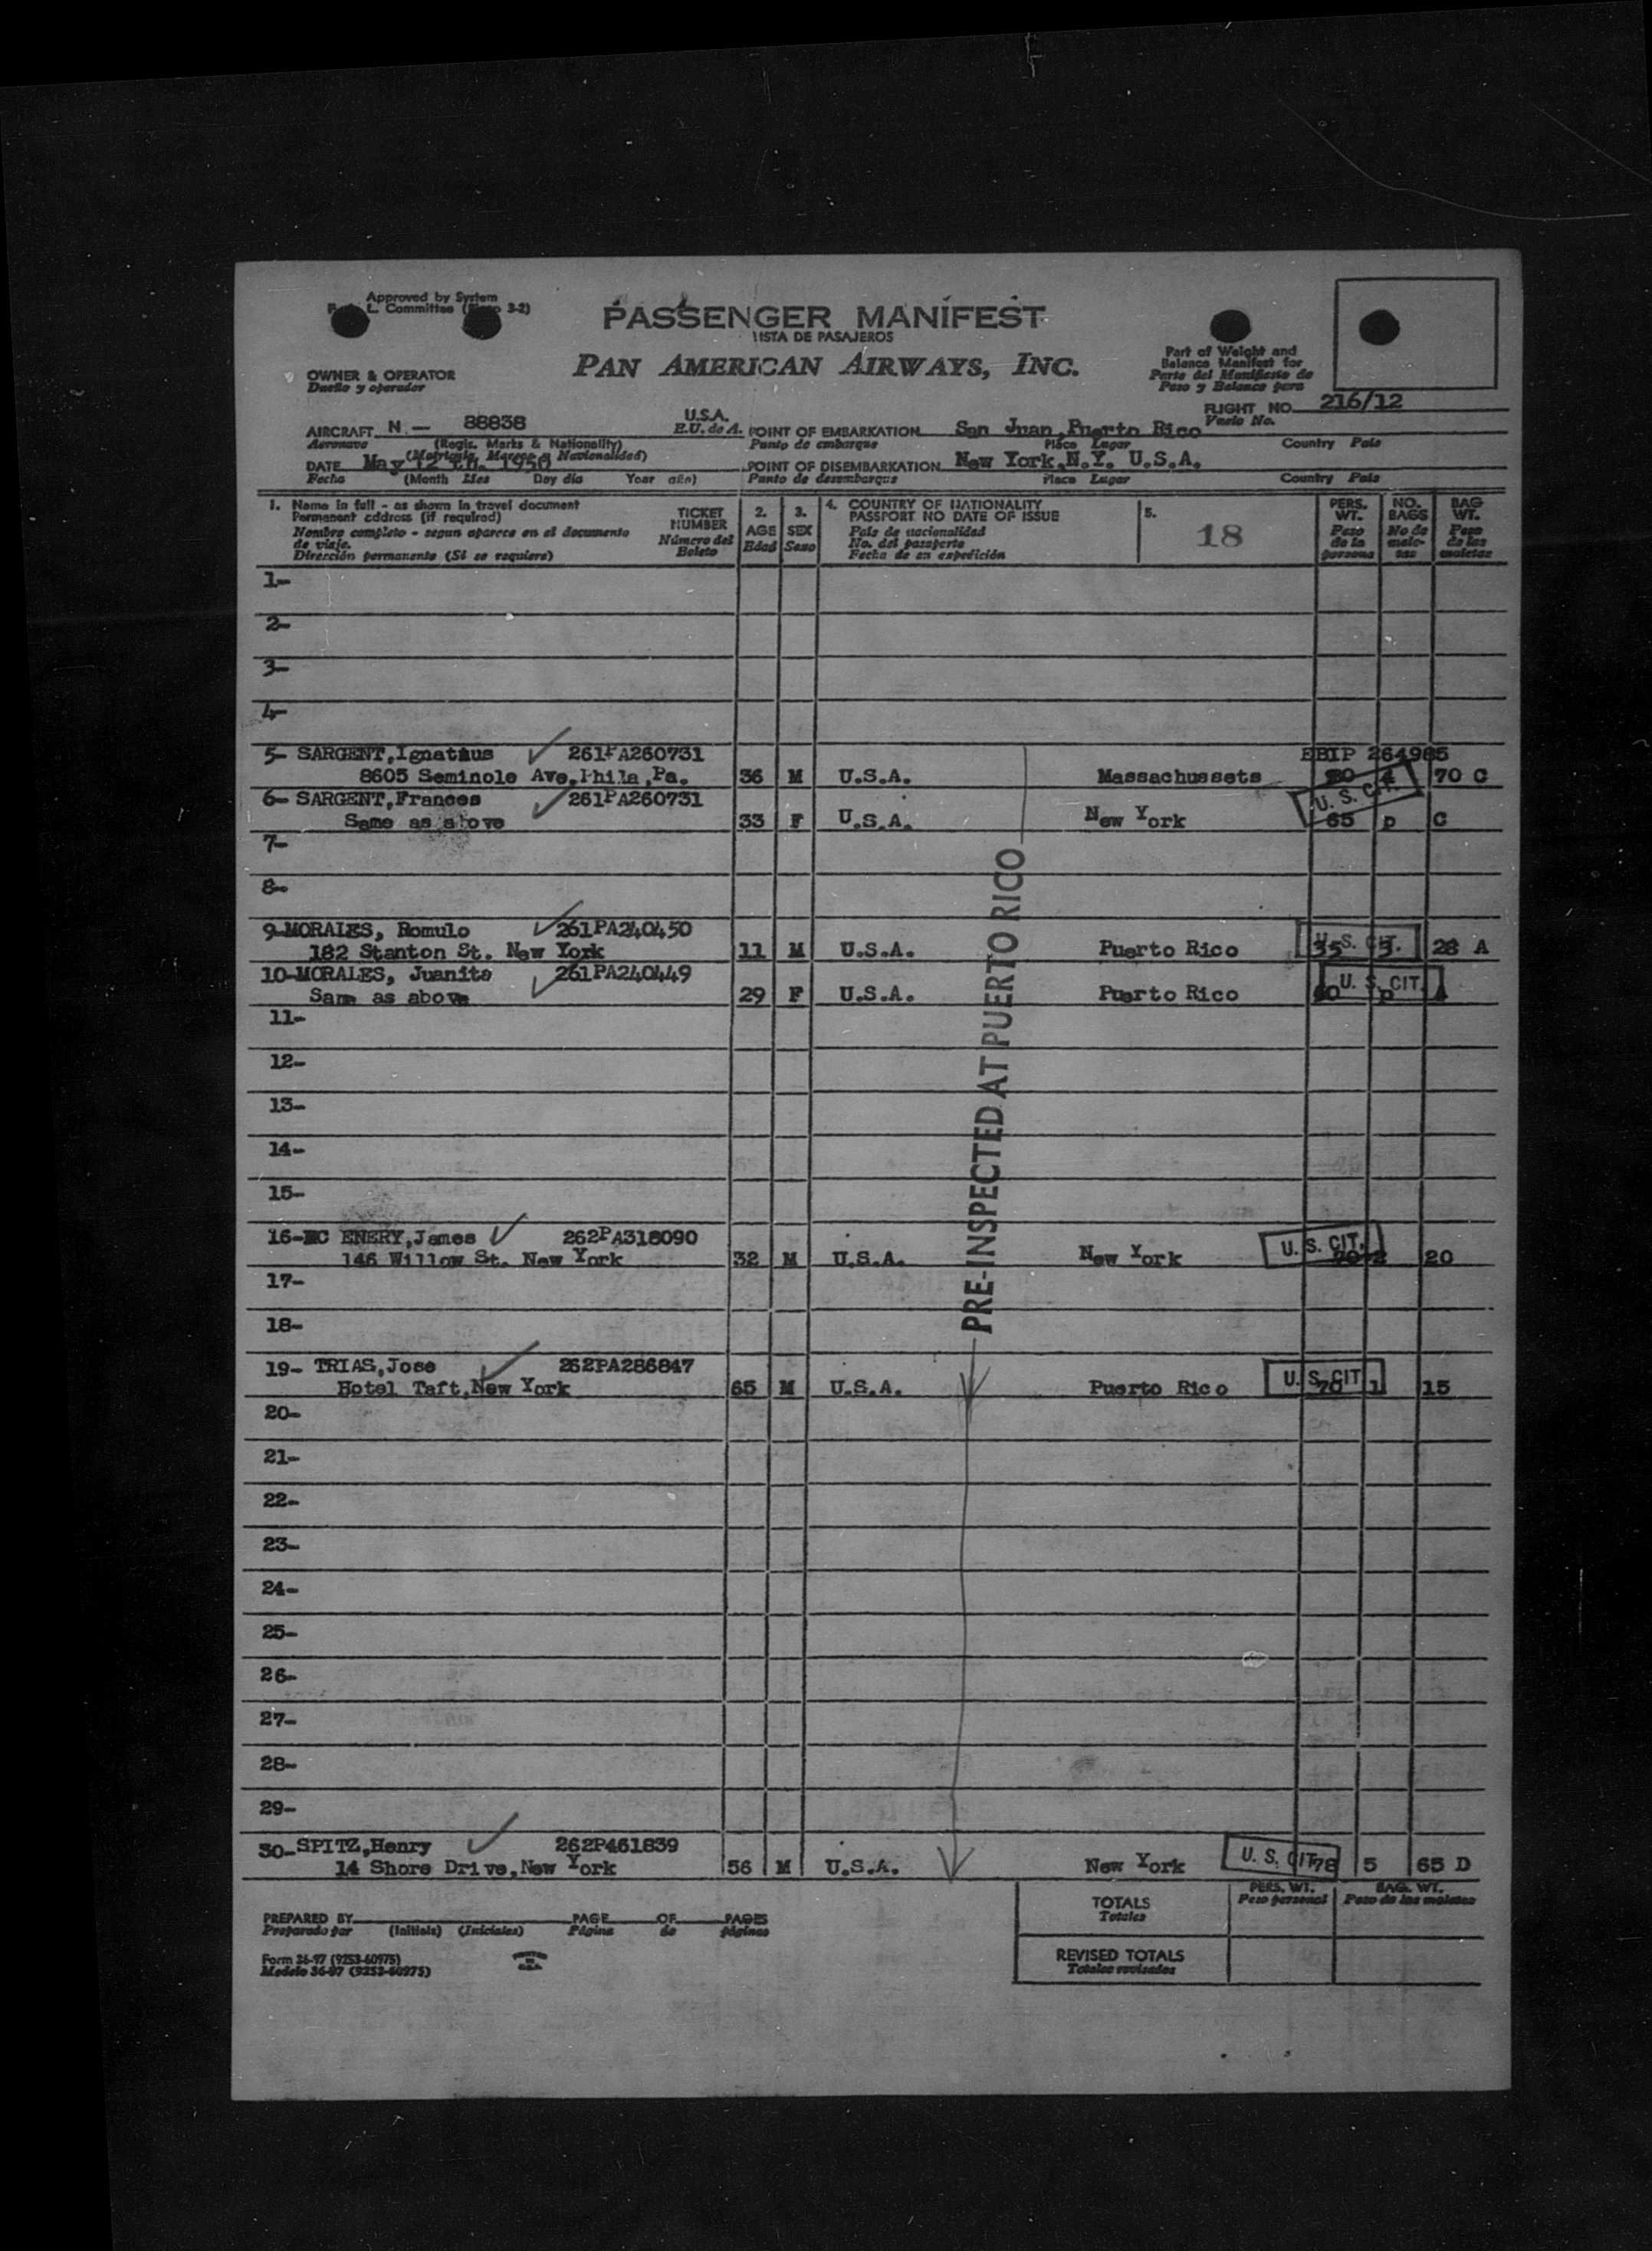 Approved by System
L. Committee 3-2)
PASSENGER MANIFEST
LISTA DE PASAJEROS
PAN AMERICAN AIRWAYS, INC.
Part of Weight and
Balance Manifest for
Parte del Manifiesto de
Peso y Balance para
OWNER & OPERATOR
Dueño y operador
FLIGHT NO. 216/12
Vuelo No.
AIRCRAFT N — 88838 U.S.A.
Aeronave (Regis. Marks & Nationality) E.U. de A.
(Matricula, Marcas y Nacionalidad)
POINT OF EMBARKATION San Juan, Puerto Rico
Punto de embarque Place Lugar Country Pais
DATE May 12 th. 1950
Fecha (Month Mes Day dia Year año)
POINT OF DISEMBARKATION New York, N.Y. U.S.A.
Punto de desembarque Place Lugar Country Pais
1. Name in full - as shown in travel document
Permanent address (if required)
Nombre completo - segun aparece en el documento
de viaje.
Dirección permanente (Si se requiere)
TICKET
NUMBER
Número del
Boleto
2.
AGE
Edad
3.
SEX
Sexo
4. COUNTRY OF NATIONALITY
PASSPORT NO DATE OF ISSUE
Pais de nacionalidad
No. del pasaporte
Fecha de su expedición
5.
18
PERS.
WT.
Peso
de la
persona
NO.
BAGS
No de
male-
tas
BAG
WT.
Peso
de las
maletas
1-
2-
3-
4-
5- SARGENT, Ignatius 261PA260731 EBIP 264985
8605 Seminole Ave, Phila, Pa. 36 M U.S.A. Massachussets 80 4 70 C
U. S. CIT.
6- SARGENT, Frances 261PA260731
Same as above 33 F U.S.A. New York 65 p C
7-
8-
9-MORALES, Romulo 261PA240450
U. S. CIT.
182 Stanton St. New York 11 M U.S.A. Puerto Rico 35 3 28 A
10-MORALES, Juanita 261PA240449
U. S. CIT.
Same as above 29 F U.S.A. Puerto Rico p
11-
12-
13-
14-
15-
PRE-INSPECTED AT PUERTO RICO
16-MC ENERY, James 262PA318090
U. S. CIT.
146 Willow St. New York 32 M U.S.A. New York 2 20
17-
18-
19- TRIAS, Jose 262PA286847
U. S. CIT
Hotel Taft, New York 65 M U.S.A. Puerto Rico 70 1 15
20-
21-
22-
23-
24-
25-
26-
27-
28-
29-
30-SPITZ, Henry 262P461839
U. S. CIT
14 Shore Drive, New York 56 M U.S.A. New York 78 5 65 D
TOTALS
Totales
PERS. WT.
Peso personal
BAG. WT.
Peso de las maletas
PREPARED BY PAGE OF PAGES
Preparado por (Initials) (Iniciales) Página de páginas
REVISED TOTALS
Totales revisados
Form 36-97 (9253-60975)
Modelo 36-97 (9253-60975)
PRINTED
IN
U.S.A.